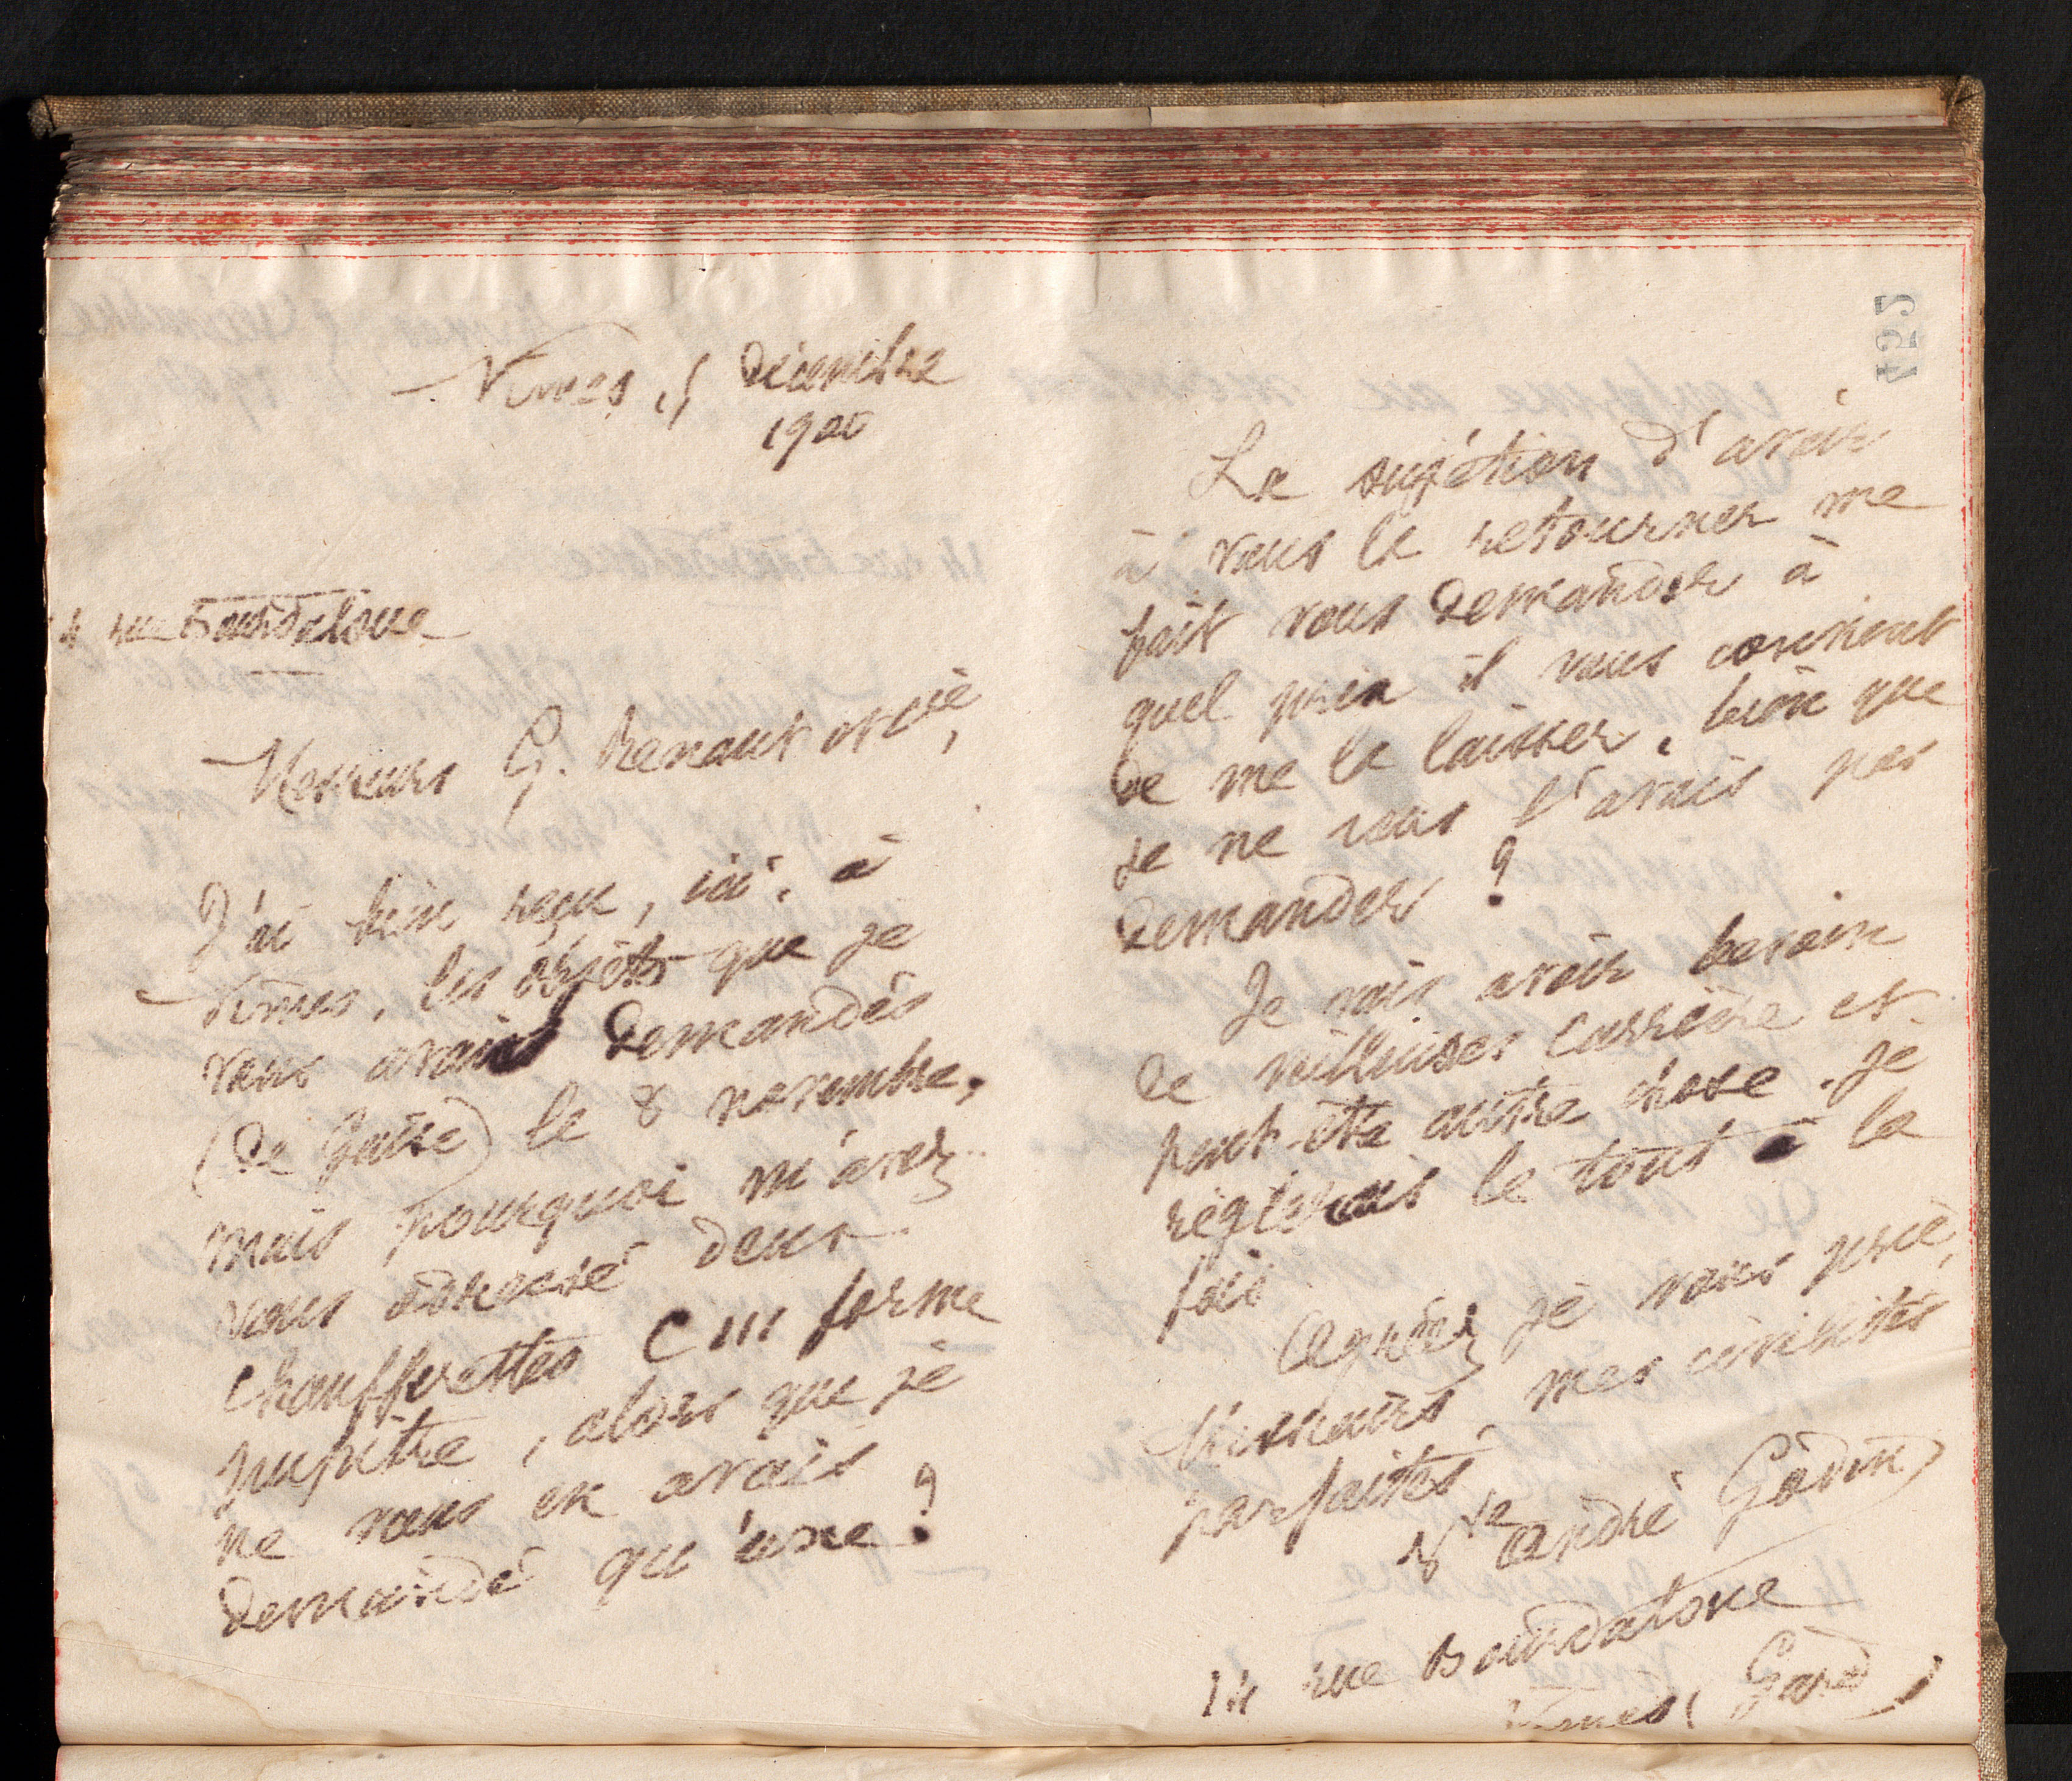 Nîmes, 5 décembre
1900
14 rue Bourdaloue
Messieurs G. Renaut et Cie,
J'ai bien reçu, ici, à
Nîmes, les objets que je
vous avais demandés
(de Guise) le 8 novembre,
mais pourquoi m'avez
vous adressé deux
chaufferettes C III forme
pupitre, alors que je
ne vous en avais
demandé qu'une ?
225
La sujétion d'avoir
à vous la retourner me
fait vous demander à
quel prix il vous convient
de me la laisser, bien que
je ne vous l'avais pas
demandée ?
Je vais avoir besoin
de veilleuses Carrière et
peut-être autre chose. Je
règlerais le tout à la
fois
Agréez je vous prie,
Messieurs, mes civilités
parfaites
Vve André Godin
14 rue Bourdaloue
Nîmes (Gard)